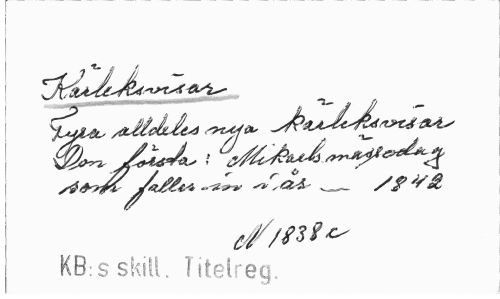 Kärleksvisar
Fyra alldeles nya kärleksvisar
Den första: Mikaels mässodag
som faller in i år — 1842
N 1838 c
KB:s skill. Titelreg.